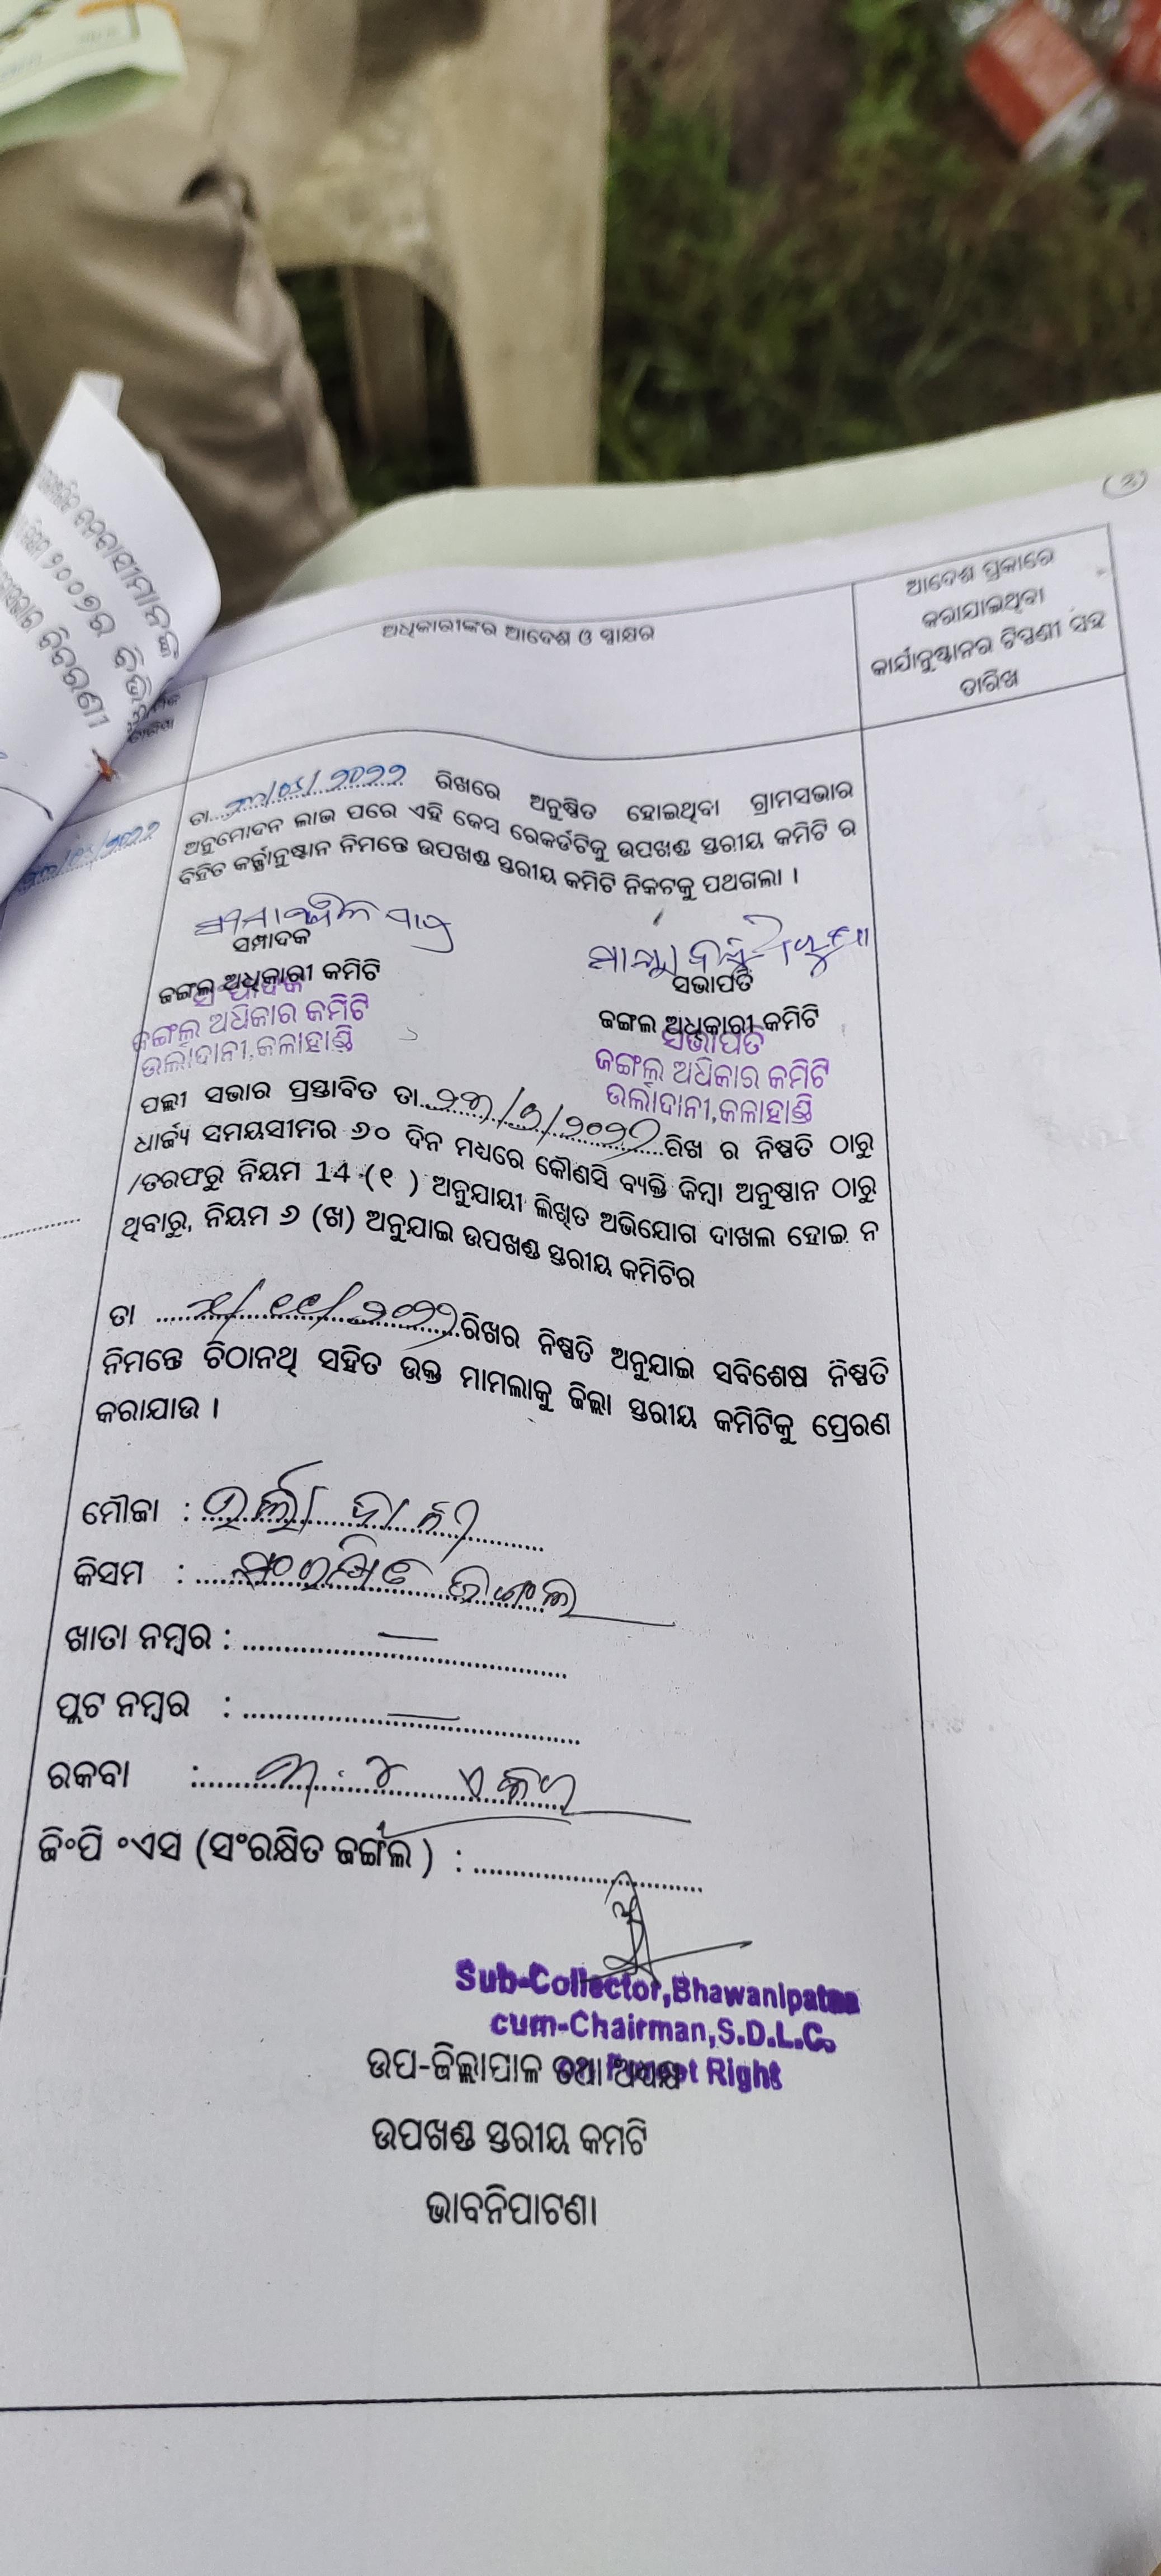 ବନବାସୀମାନଙ୍କ
୨୦୦୭ର
ବିବରଣୀ
ଅଧିକାରୀଙ୍କର ଆଦେଶ ଓ ସ୍ୱାକ୍ଷର
ଆଦେଶ ପ୍ରକାରେ
କରାଯାଇଥିବା
କାର୍ଯାନୁଷ୍ଠାନର ଟିପ୍ପଣୀ ସହ
ତାରିଖ
ତା.../୨୦୨୨ ରିଖରେ ଅନୁଷ୍ଠିତ ହୋଇଥିବା ଗ୍ରାମସଭାର
ଅନୁମୋଦନ ଲାଭ ପରେ ଏହି କେସ ରେକର୍ଡଟିକୁ ଉପଖଣ୍ଡ ସ୍ତରୀୟ କମିଟି ର
ବିହିତ କର୍ଜ୍ଯାନୁଷ୍ଠାନ ନିମନ୍ତେ ଉପଖଣ୍ଡ ସ୍ତରୀୟ କମିଟି ନିକଟକୁ ପଥଗଲା ।
ସମ୍ପାଦକ
ଜଙ୍ଗଲ ଅଧିକାରୀ କମିଟି
ସଂପାଦକ
ଜଙ୍ଗଲ ଅଧିକାର କମିଟି
ଉର୍ଲାଦାନୀ,କଳାହାଣ୍ଡି
ସଭାପତି
ଜଙ୍ଗଲ ଅଧିକାରୀ କମିଟି
ସଭାପତି
ଜଙ୍ଗଲ ଅଧିକାର କମିଟି
ଉର୍ଲାଦାନୀ,କଳାହାଣ୍ଡି
ପଲ୍ଲୀ ସଭାର ପ୍ରସ୍ତାବିତ ତା.../୨୦୨୨...ରିଖ ର ନିଷ୍ପତି ଠାରୁ
ଧାର୍ଜ୍ଯ ସମୟସୀମର ୬୦ ଦିନ ମଧ୍ୟରେ କୌଣସି ବ୍ୟକ୍ତି କିମ୍ବା ଅନୁଷ୍ଠାନ ଠାରୁ
/ତରଫରୁ ନିୟମ 14 -(୧ ) ଅନୁଯାୟୀ ଲିଖିତ ଅଭିଯୋଗ ଦାଖଲ ହୋଇ ନ
ଥିବାରୁ, ନିୟମ ୬ (ଖ) ଅନୁଯାଇ ଉପଖଣ୍ଡ ସ୍ତରୀୟ କମିଟିର
ତା .../୨୦୨୨...ରିଖର ନିଷ୍ପତି ଅନୁଯାଇ ସବିଶେଷ ନିଷ୍ପତି
ନିମନ୍ତେ ଚିଠାନଥି ସହିତ ଉକ୍ତ ମାମଲାକୁ ଜିଲ୍ଲା ସ୍ତରୀୟ କମିଟିକୁ ପ୍ରେରଣ
କରାଯାଉ ।
ମୌଜା : ଉର୍ଲାଦାନୀ
କିସମ : ସଂରକ୍ଷିତ ଜଙ୍ଗଲ
ଖାତା ନମ୍ବର : —
ପ୍ଲଟ ନମ୍ବର : —
ରକବା : ୩.୪ ଏକର
ଜିଂପି ଂଏସ (ସଂରକ୍ଷିତ ଜଙ୍ଗଲ ) : ...
Sub-Collector,Bhawanipatna
cum-Chairman,S.D.L.C.
Forest Right
ଉପ-ଜିଲ୍ଲାପାଳ ତଥା ଅଧ୍ୟକ୍ଷ
ଉପଖଣ୍ଡ ସ୍ତରୀୟ କମଟି
ଭାବନିପାଟଣା